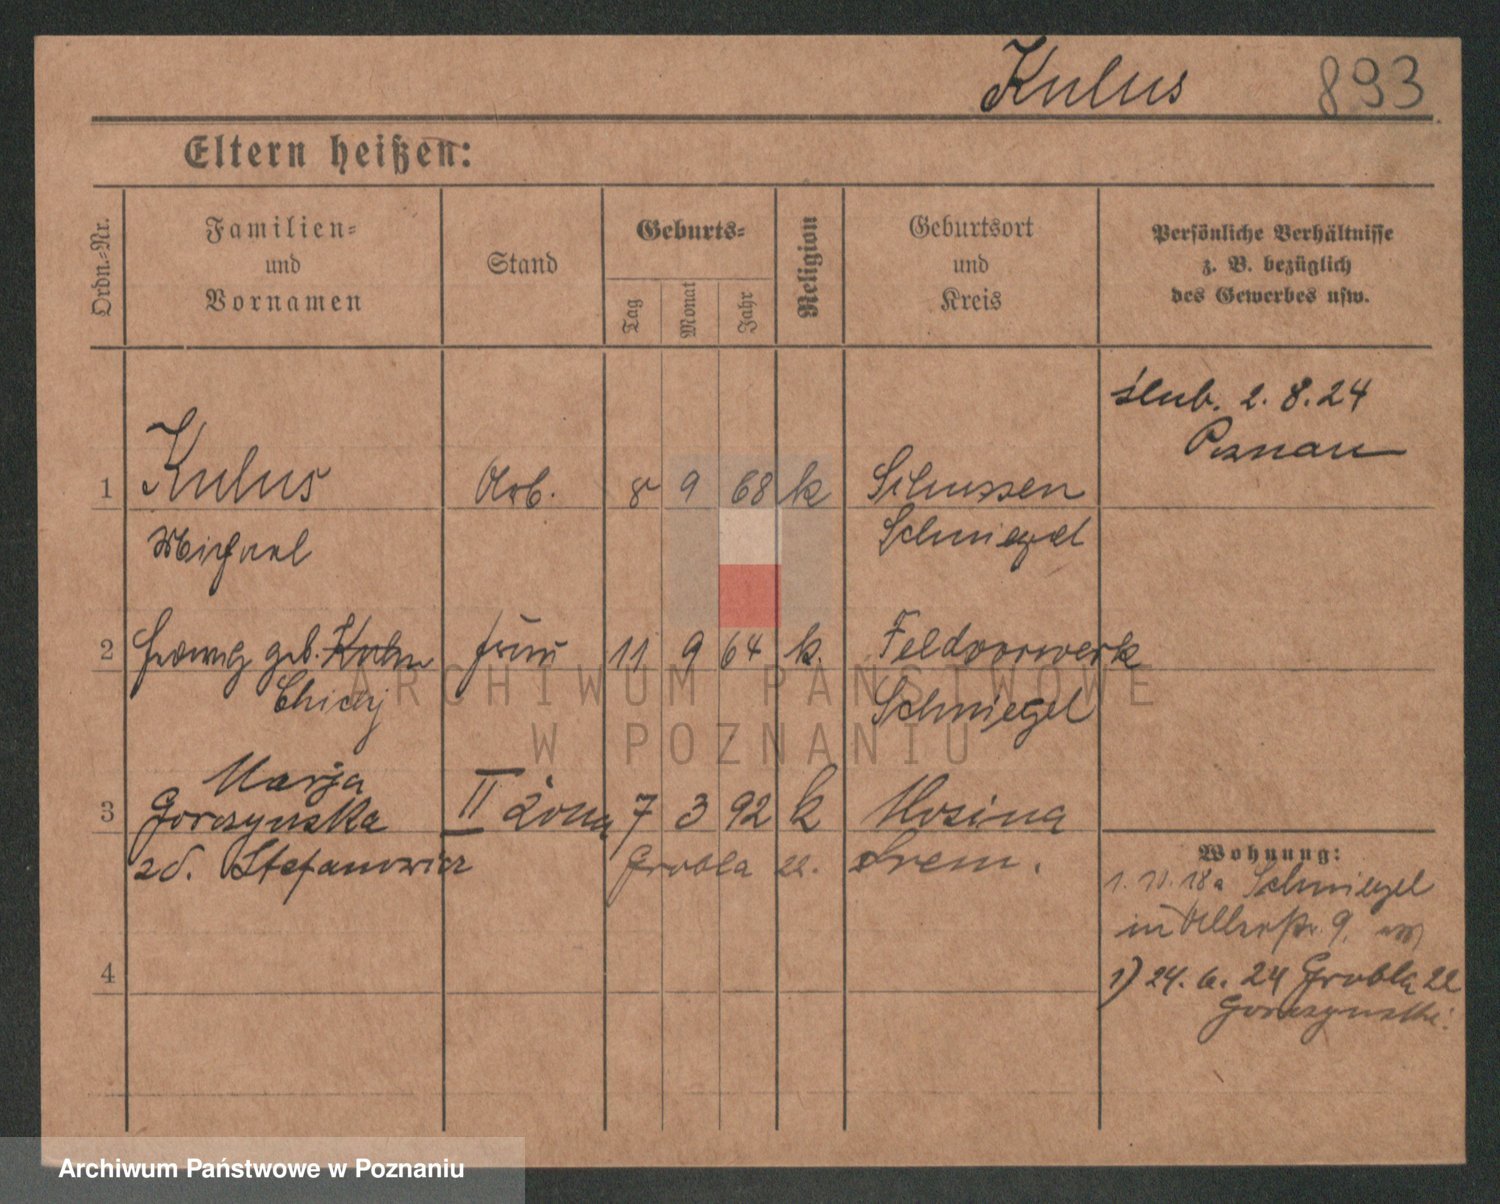 Kulus 893
Eltern heißen:
Ordn.-Nr.
Familien-
und
Vornamen
Stand
Geburts-
Tag
Monat
Jahr
Religion
Geburtsort
und
Kreis
Persönliche Verhältnisse
z. B. bezüglich
des Gewerbes usw.
ślub. 2. 8. 24
Poznań
1 Kulus Arb. 8 9 68 k Schussen
Michael Schmiegel
2 Hedwig geb. Kuhn Frau 11 9 64 k. Feldvorwerk
Schmiegel
Marja
3 Gorczynska II żona 7 3 92 k Mosina
zd. Stefanowicz Grobla 22. Śrem.
Wohnung:
1. 10. 18 a Schmiegel
in 9.
4
1) 24. 6. 24 Grobla 22
Gorczynski.
ARCHIWUM PAŃSTWOWE
W POZNANIU
Archiwum Państwowe w Poznaniu